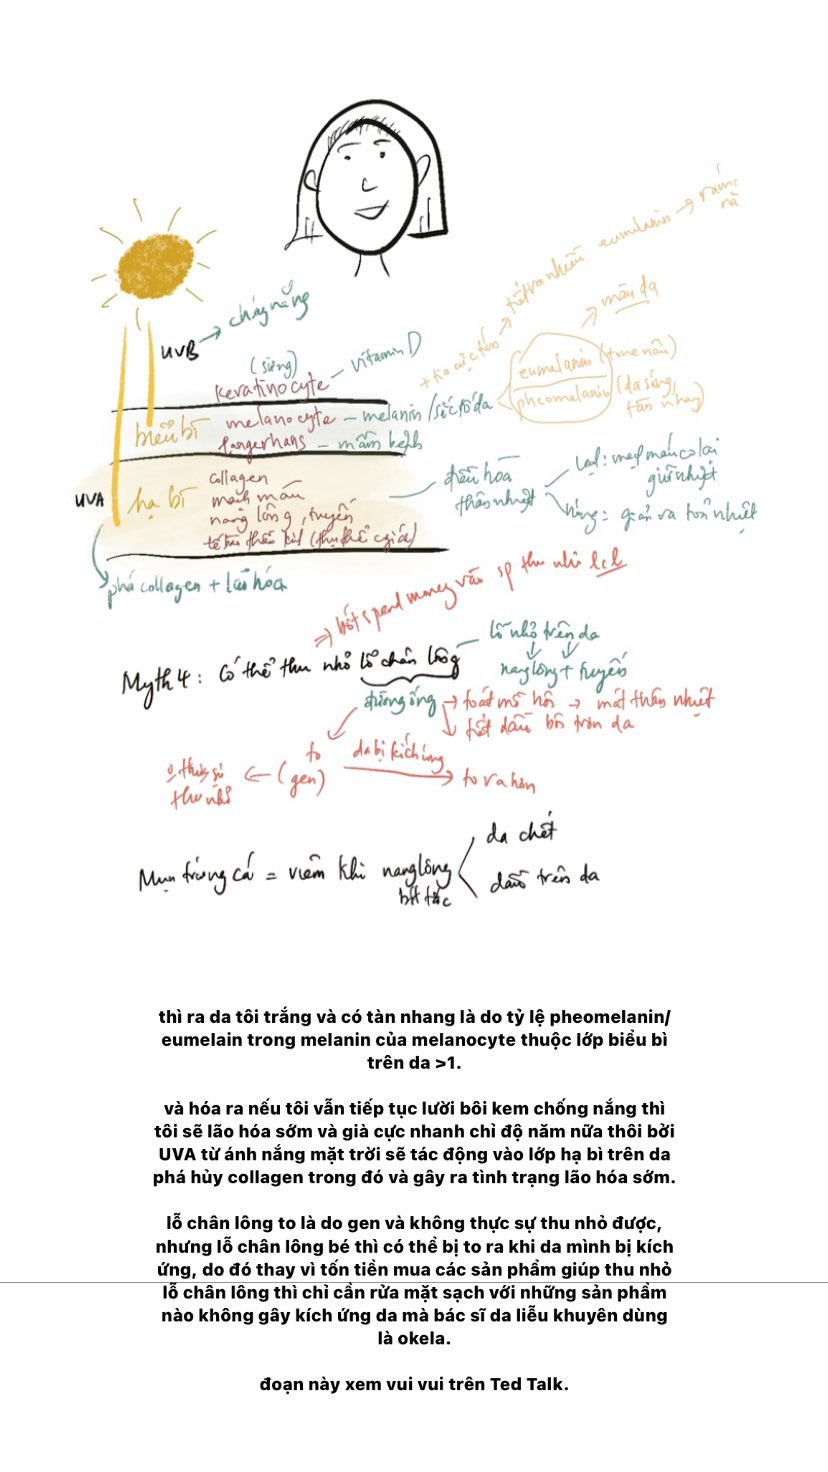 rám
nả
tiết ra nhiều eumelanin →
→ màu da
UVB → chống nắng
(sừng)
keratinocyte – vitamin D
+ tia cực tím →
eumelanin (tone nâu)
pheomelanin (da sáng,
tàn nhang)
biểu bì
melanocyte – melanin / sắc tố da
langerhans – mầm bệnh
UVA
hạ bì
collagen
mạch máu
nang lông, tuyến
tế bào thần kinh (thụ thể cảm giác)
điều hòa
thân nhiệt
lạnh: mạch máu co lại
giữ nhiệt
nóng: giãn ra toả nhiệt
phá collagen + lão hóa
⇒ bớt spend money vào sp thu nhỏ lcl
Myth 4: Có thể thu nhỏ lỗ chân lông
lỗ nhỏ trên da
nang lông + tuyến
đường ống
→ toát mồ hôi → mát thân nhiệt
tiết dầu bôi trơn da
to
(gen)
da bị kích ứng
→ to ra hơn
thực sự
thu nhỏ
Mụn trứng cá = viêm khi nang lông
bít tắc
da chết
dầu trên da
thì ra da tôi trắng và có tàn nhang là do tỷ lệ pheomelanin/
eumelain trong melanin của melanocyte thuộc lớp biểu bì
trên da >1.
và hóa ra nếu tôi vẫn tiếp tục lười bôi kem chống nắng thì
tôi sẽ lão hóa sớm và già cực nhanh chỉ độ năm nữa thôi bởi
UVA từ ánh nắng mặt trời sẽ tác động vào lớp hạ bì trên da
phá hủy collagen trong đó và gây ra tình trạng lão hóa sớm.
lỗ chân lông to là do gen và không thực sự thu nhỏ được,
nhưng lỗ chân lông bé thì có thể bị to ra khi da mình bị kích
ứng, do đó thay vì tốn tiền mua các sản phẩm giúp thu nhỏ
lỗ chân lông thì chỉ cần rửa mặt sạch với những sản phẩm
nào không gây kích ứng da mà bác sĩ da liễu khuyên dùng
là okela.
đoạn này xem vui vui trên Ted Talk.